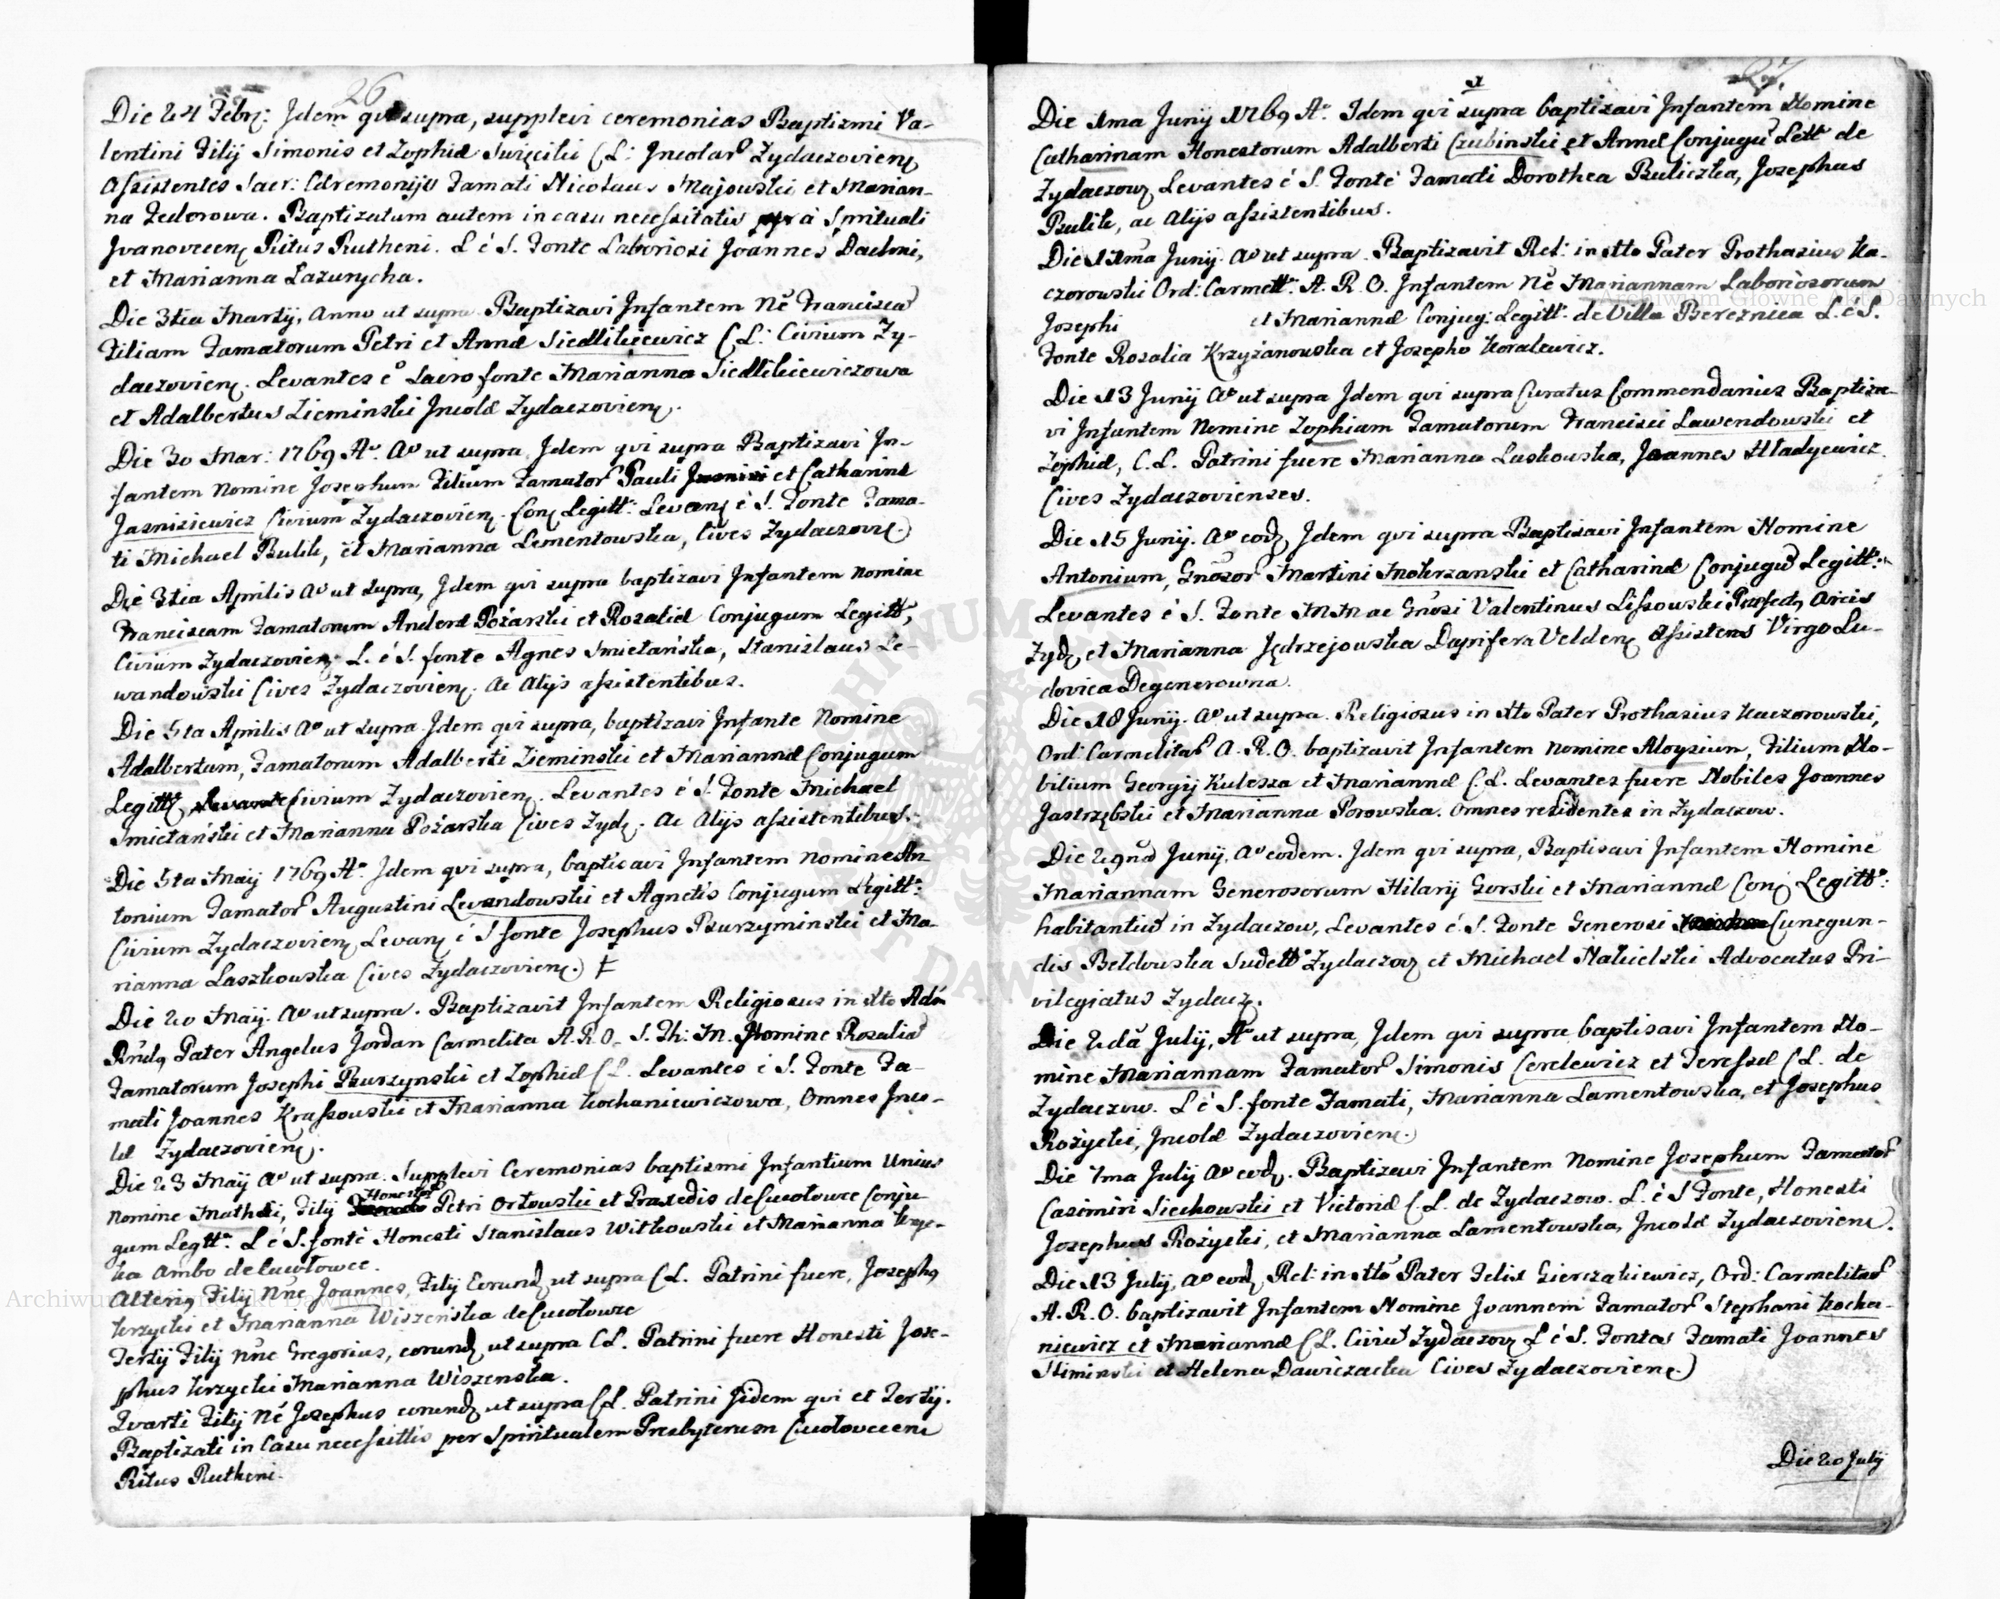 26
Die 24 Febr: Idem qvi supra, supplevi ceremonias Baptizmi Va-
lentini Filij Simonis et Zophiæ Swięcilii C L: Incolarũ Zydaczovien
Assistentes Sacr: Cæremonijs Famati Nicolaus Majowski et Marian-
na Fedorowa. Baptizatum autem in casu necessitatis à Spirituali
Jvanovecen Ritus Rutheni. L è S. Fonte Laboriosi Joannes Daubni,
et Marianna Lazurycha.
Die 3tia Martij, Anno ut supra Baptizavi Infantem Nẽ Franciscã
Filiam Famatorum Petri et Annæ Siedlikiewicz C L: Civium Zy-
daczovien. Levantes è Sacro fonte Marianna Siedlikiewiczowa
et Adalbertus Zieminski Incolæ Zydaczovien.
Die 30 Mar: 1769 Aº. Aº ut supra Idem qvi supra Baptizavi In-
fantem Nomine Josephum Filium Famatorũ Pauli et Catharinæ
Jasnisiewicz Civium Zydaczovien. Con Legitt: Levan è S. Fonte Fama-
ti Michael Bulik, et Marianna Lementowska, Cives Zydaczov.
Die 3tia Aprilis Aº ut supra, Idem qvi supra baptizavi Infantem Nomine
Franciscam Famatorum Andreæ Pożarski et Rosaliæ Conjugum Legitt,
Civium Zydaczovien. L. è S. fonte Agnes Smietańska, Stanislaus Le-
wandowski Cives Zydaczovien. Ac Alijs assistentibus.
Die 5ta Aprilis Aº ut supra Idem qvi supra, baptizavi Infante Nomine
Adalbertum, Famatorum Adalberti Zieminski et Mariannæ Conjugum
Legitt, Civium Zydaczovien. Levantes è S. Fonte Michael
Smietański et Marianna Pożarska Cives Zyd. Ac Alijs assistentibus.
Die 5ta Maij 1769 Aº. Idem qvi supra, baptisavi Infantem Nomine An
tonium Famatorũ Augustini Lewandowski et Agnetis Conjugum Legitt:
Civium Zydaczovien Levan è S fonte Josephus Burzyminski et Ma-
rianna Laszkowska Cives Zydaczovien.)
Die 20 Maij. Aº ut supra. Baptizavit Infantem Religiosus in Xto Adm
Rndq Pater Angelus Jordan Carmelita A.R.O. S. Th: M. Nomine Rosaliã
Famatorum Josephi Burzynski et Zophiæ C L. Levantes è S. Fonte Fa-
mati Joannes Krassowski et Marianna Kochaniewiczowa, Omnes Inco-
læ Zydaczovien.
Die 23 Maij Aº ut supra. Supplevi Ceremonias baptizmi Infantium Unius
Nomine Mathæi, Filij Honestorũ Petri Orłowski et Praxedis de Cucołowce Conju
gum Legtt. L è S. fonte Honesti Stanislaus Witkowski et Marianna Krzyc-
ka Ambo de Cucołowce.
Alteriq Filij Nne Joannes, Filij Eorund ut supra C L. Patrini fuere, Josephq
Krzycki et Marianna Wiszenska de Cucołowce
Tertij Filij Nne Gregorius, eorund ut supra C L. Patrini fuere Honesti Jose-
phus Krzycki Marianna Wiszenska.
Qvarti Filij Nẽ Josephus eorund ut supra C L. Patrini Iidem qvi et Tertij.
Baptizati in Casu necessittis per Spiritualem Presbyterum Cucolovecen
Ritus Rutheni.
27
Die 1ma Junij 1769 Aº. Idem qvi supra baptizavi Infantem Nomine
Catharinam Honestorum Adalberti Czubinski et Annæ Conjugũ Legtt de
Zydaczow Levantes è S. Fonte Famati Dorothea Buliczka, Josephus
Bulik, ac Alijs assistentibus.
Die 11ma Junij. Aº ut supra. Baptizavit Rel: in Xto Pater Prothasius Ka-
czorowski Ord: Carmett. A. R. O. Infantem Nẽ Mariannam Laboriosorum
Josephi et Mariannæ Conjug: Legitt. de Villa Bereznica L. è S.
Fonte Rosalia Krzyżanowska et Josepho Koralewicz.
Die 13 Junij Aº ut supra Idem qvi supra Curatus Commendarius Baptiza-
vi Infantem Nomine Zophiam Famatorum Francisci Lawendowski et
Zophiæ, C. L. Patrini fuere Marianna Laskowska, Joannes Hladyewicz
Cives Zydaczovienses.
Die 15 Junij. Aº eod Idem qvi supra Baptisavi Infantem Nomine
Antonium, Gnosorũ Martini Mokrzanski et Catharinæ Conjugũ Legitt:
Levantes è S. Fonte MM ac Gnosi Valentinus Lissowski Præfect Arcis
Zyd et Marianna Jędrzejowska Dapifera Velden Assistens Virgo Lu-
dovica Degenerowna.
Die 18 Junij. Aº ut supra. Religiosus in Xto Pater Prothasius Kaczorowski,
Ord: Carmelitarũ A. R. O. baptizavit Infantem Nomine Aloysium, Filium No-
bilium Georgij Kulesza et Mariannæ C. L. Levantes fuere Nobiles Joannes
Jastrzębski et Marianna Porowska. Omnes residentes in Zydaczow.
Die 29na Junij, Aº eodem. Idem qvi supra, Baptisavi Infantem Nomine
Mariannam Generosorum Hilarij Gorski et Mariannæ Con Legitt:
habitantiũ in Zydaczow, Levantes è S. Fonte Generosi Cunegun-
dis Bełdowska Sudett Zydaczov et Michael Nakielski Advocatus Pri-
vilegiatus Zydacz.
Die 2da Julij, Aº ut supra, Idem qvi supra baptisavi Infantem No-
mine Mariannam Famatorũ Simonis Cerelewicz et Teressæ C L. de
Zydaczow. L è S. fonte Famati, Marianna Lamentowska, et Josephus
Rożycki, Incolæ Zydaczovien.)
Die 7ma Julij Aº eod. Baptizavi Infantem Nomine Josephum Famatorũ
Casimiri Siechowski et Victoriæ C. L. de Zydaczow. L. è S Fonte, Honesti
Josephus Rożycki, et Marianna Lamentowska, Incolæ Zydaczovien.
Die 13 Julij, Aº eod, Rel: in Xto Pater Felix Gierczakiewicz, Ord: Carmelitarũ
A. R. O. baptizavit Infantem Nomine Joannem Famatorũ Stephani Kocha-
niewicz et Mariannæ C L. Civiũ Zydaczov L è S. Fontes Famati Joannes
Kliminski et Helena Dawiczacka Cives Zydaczovien.)
Die 20 Julij
Archiwum Główne Akt Dawnych
Archiwum Główne Akt Dawnych